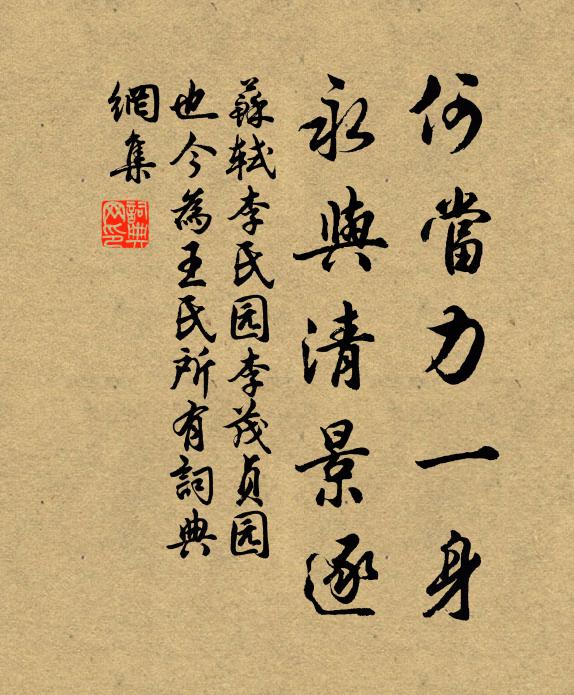 何當力一身
永與清景逐
蘇軾李氏园李茂貞园
也今為王氏所有詞典
網集
詞典網印